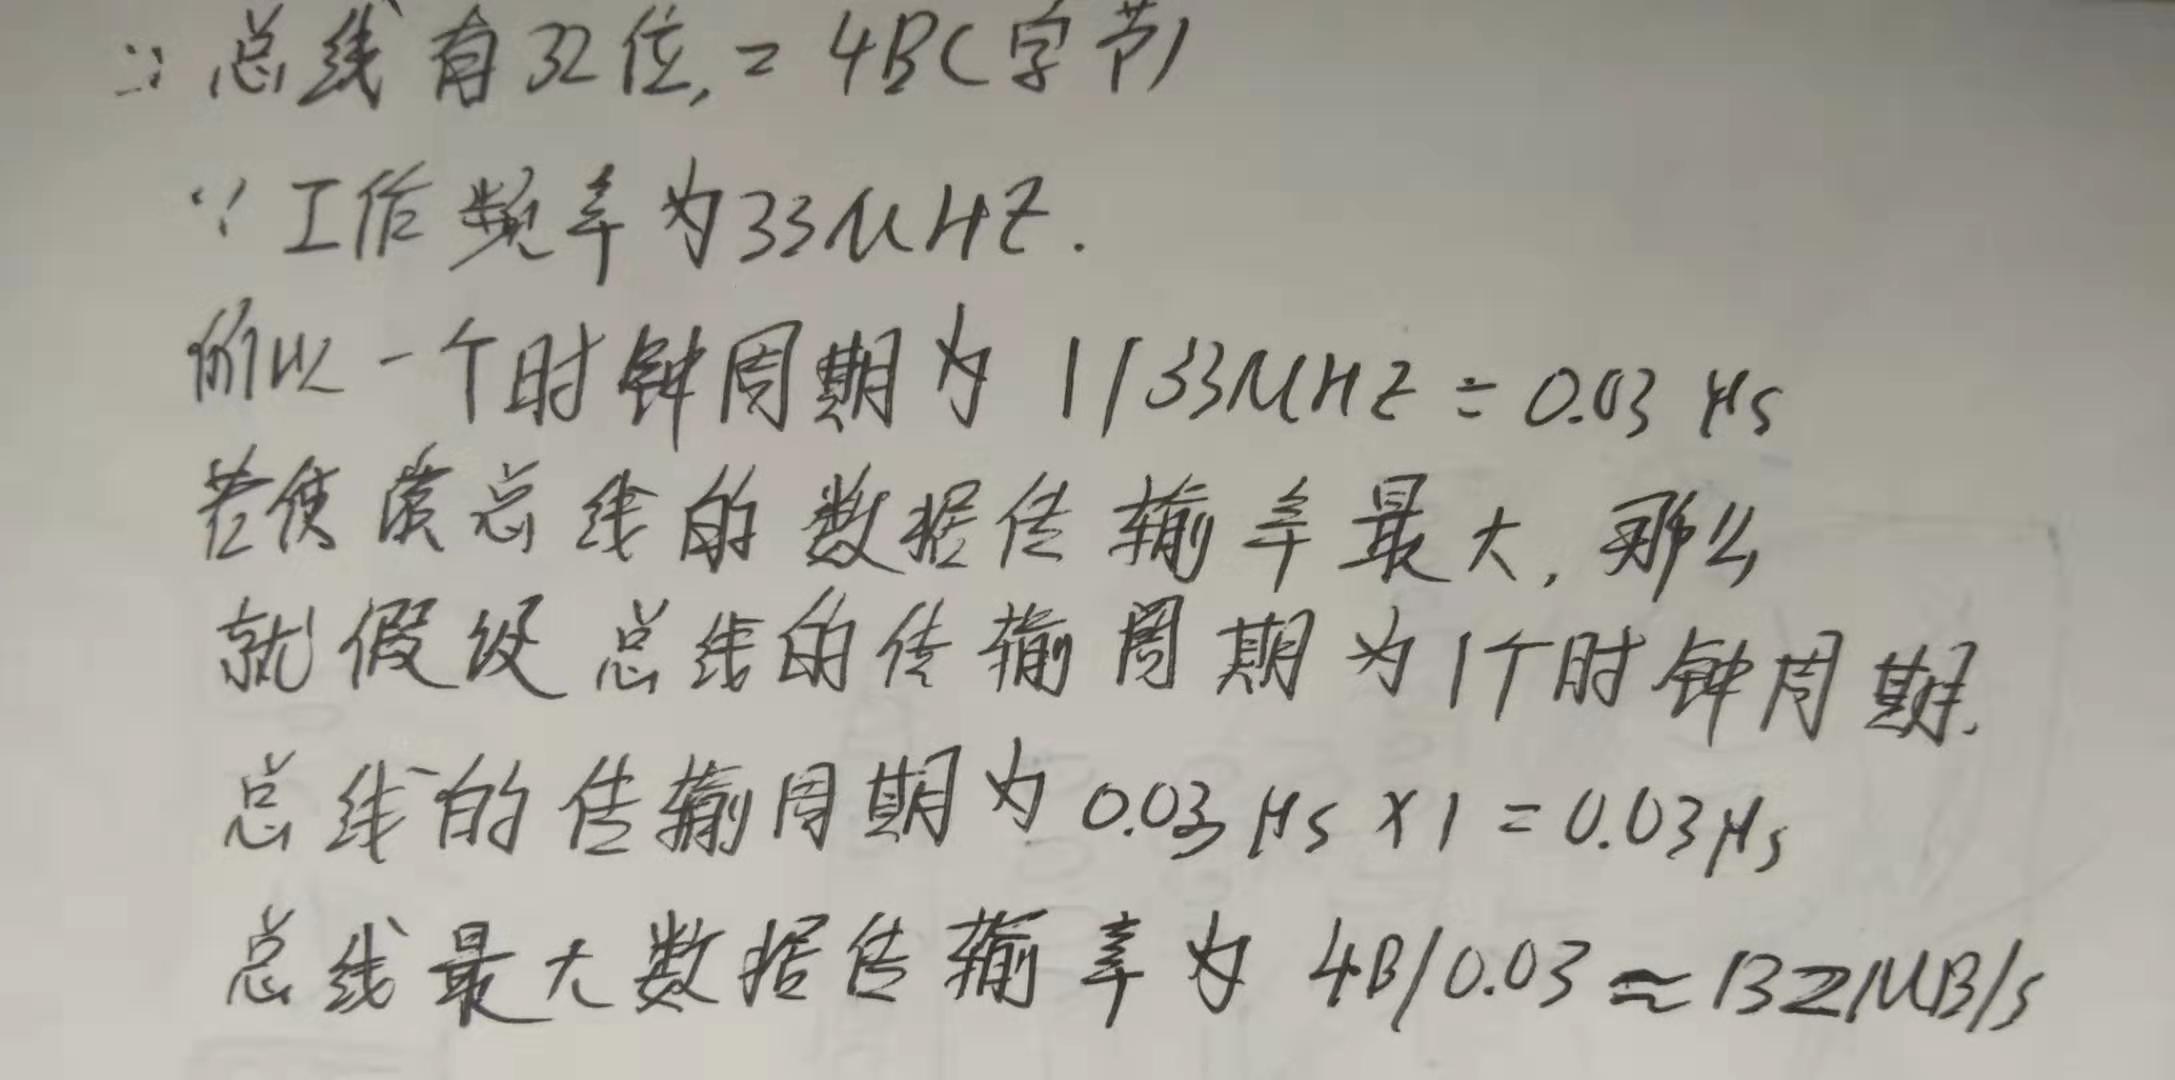 ∵总线有32位,=4B(字节)
∵工作频率为33MHZ.
所以一个时钟周期为 1/33MHZ=0.03μs
若使该总线的数据传输率最大,那么
就假设总线的传输周期为1个时钟周期.
总线的传输周期为0.03μs×1=0.03μs
总线最大数据传输率为 4B/0.03≈132MB/s